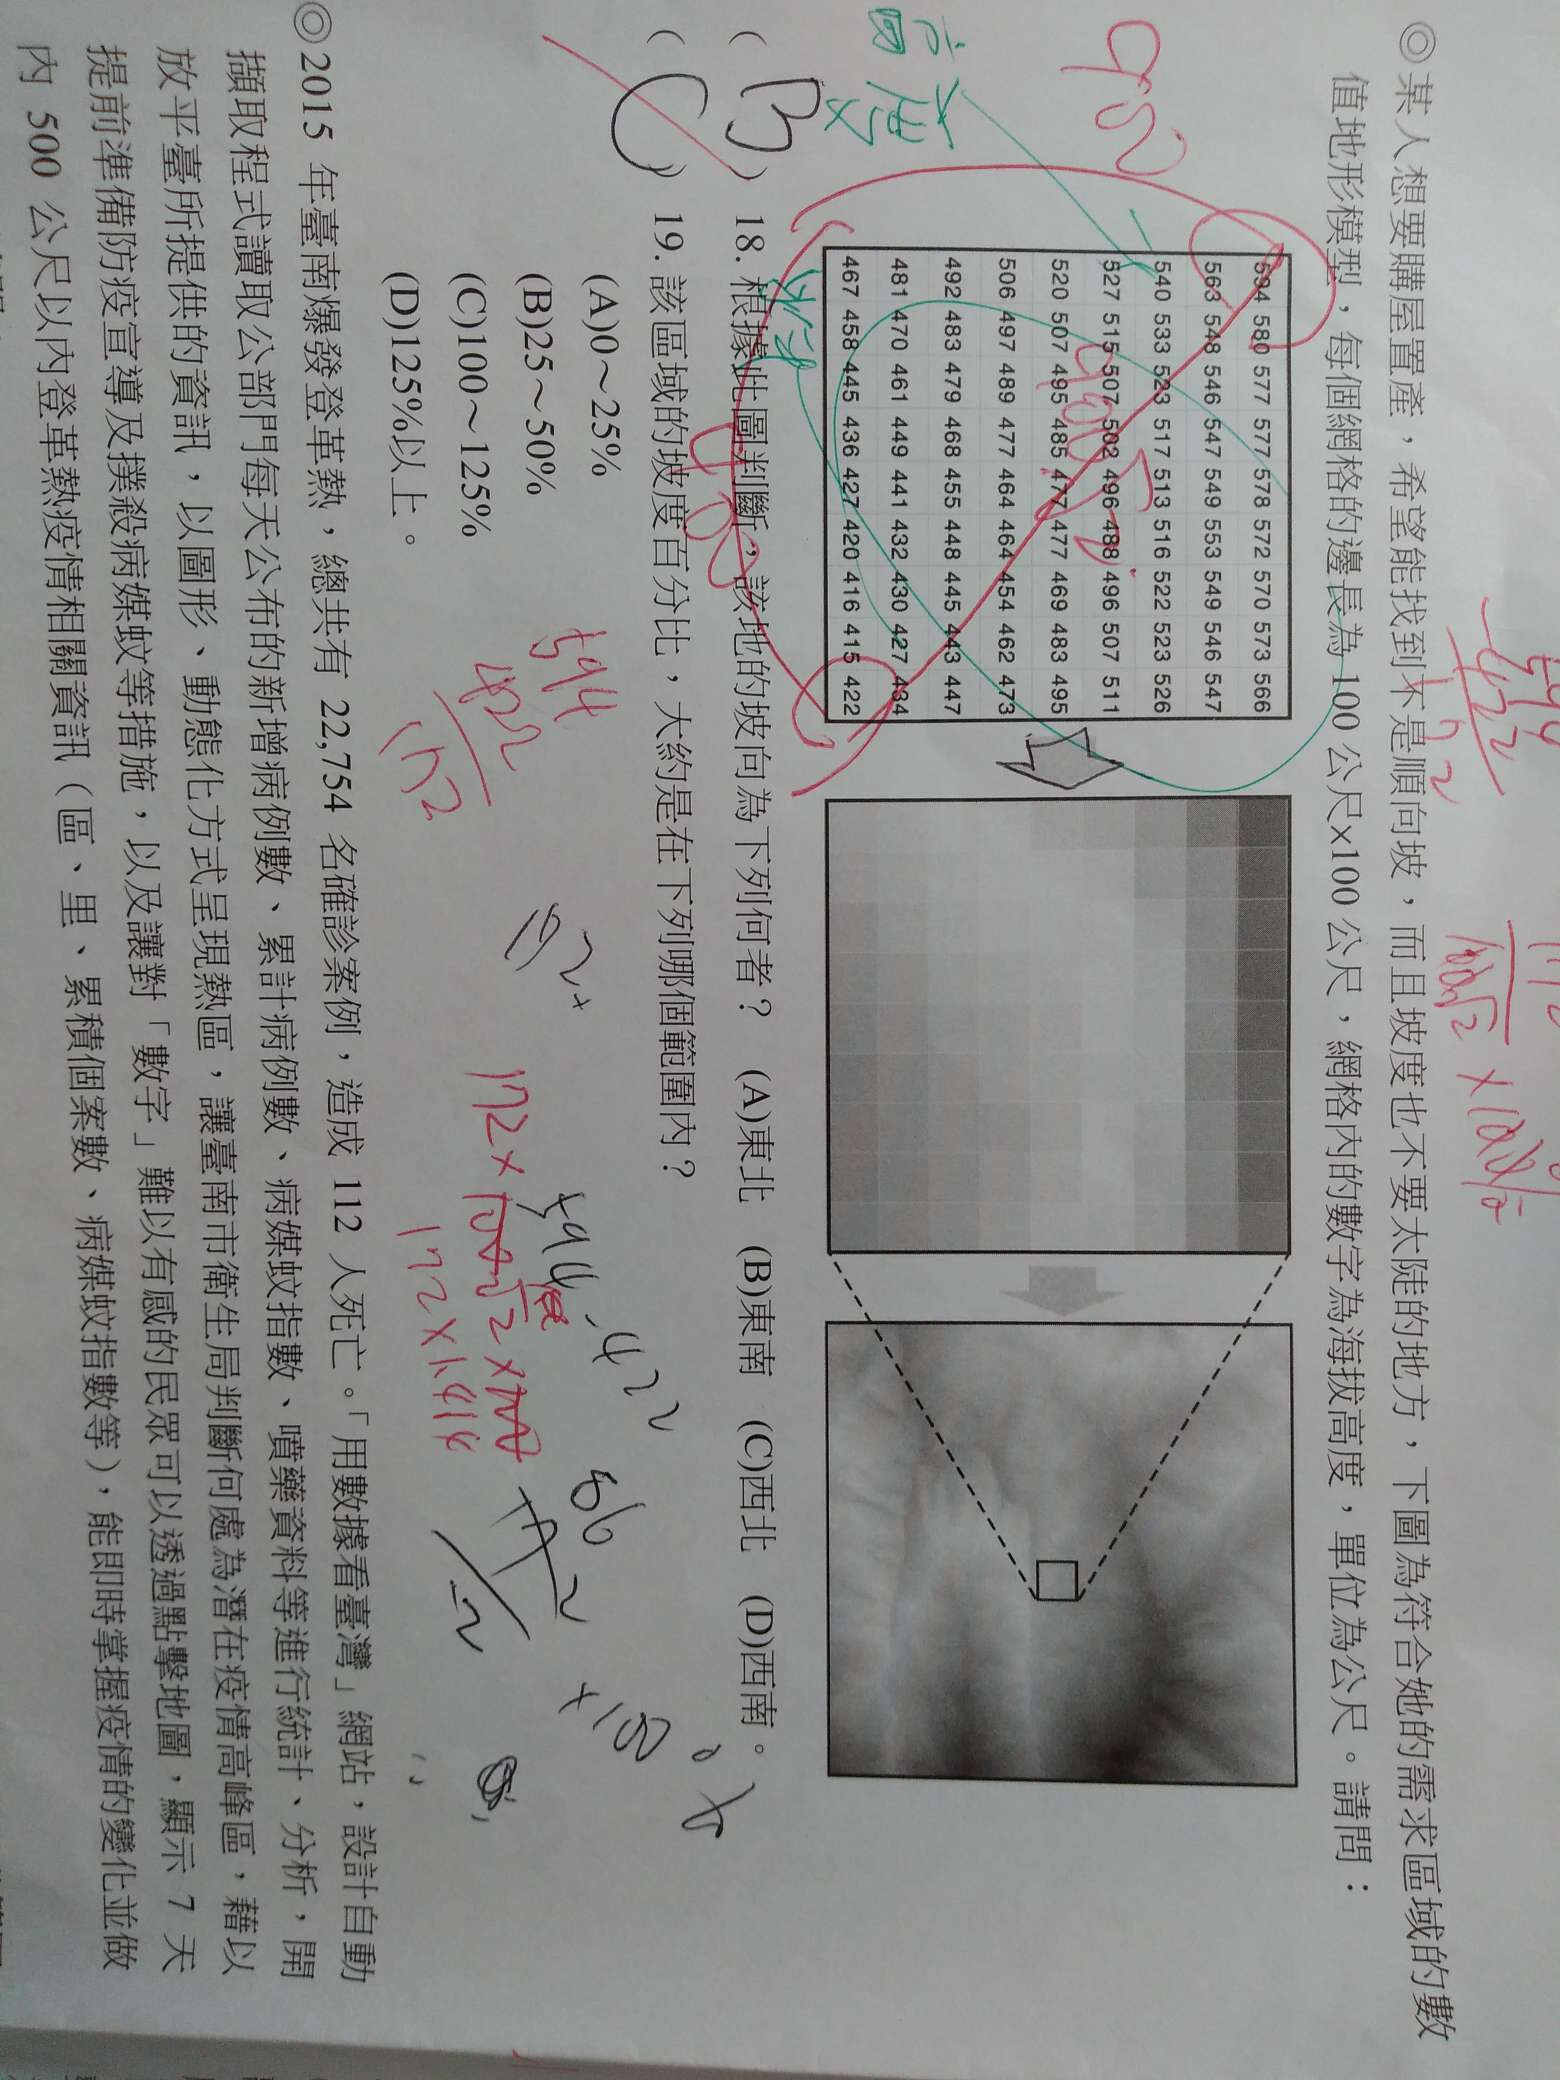 ◎某人想要購屋置產，希望能找到不是順向坡，而且坡度也不要太陡的地方，下圖為符合她的需求區域的數
值地形模型，每個網格的邊長為 100 公尺×100 公尺，網格內的數字為海拔高度，單位為公尺。請問：
594 580 577 577 578 572 570 573 566
563 548 546 547 549 553 549 546 547
540 533 523 517 513 516 522 523 526
527 515 507 502 496 488 496 507 511
520 507 495 485 477 477 469 483 495
506 497 489 477 464 464 454 462 473
492 483 479 468 455 448 445 443 447
481 470 461 449 441 432 430 427 434
467 458 445 436 427 420 416 415 422
(B) 18. 根據此圖判斷，該地的坡向為下列何者？ (A)東北 (B)東南 (C)西北 (D)西南。
(C) 19. 該區域的坡度百分比，大約是在下列哪個範圍內？
(A)0～25%
(B)25～50%
(C)100～125%
(D)125%以上。
594
422
172
594-422
172×
172×1.414
◎2015 年臺南爆發登革熱，總共有 22,754 名確診案例，造成 112 人死亡。「用數據看臺灣」網站，設計自動
擷取程式讀取公部門每天公布的新增病例數、累計病例數、病媒蚊指數、噴藥資料等進行統計、分析，開
放平臺所提供的資訊，以圖形、動態化方式呈現熱區，讓臺南市衛生局判斷何處為潛在疫情高峰區，藉以
提前準備防疫宣導及撲殺病媒蚊等措施，以及讓對「數字」難以有感的民眾可以透過點擊地圖，顯示 7 天
內 500 公尺以內登革熱疫情相關資訊（區、里、累積個案數、病媒蚊指數等），能即時掌握疫情的變化並做